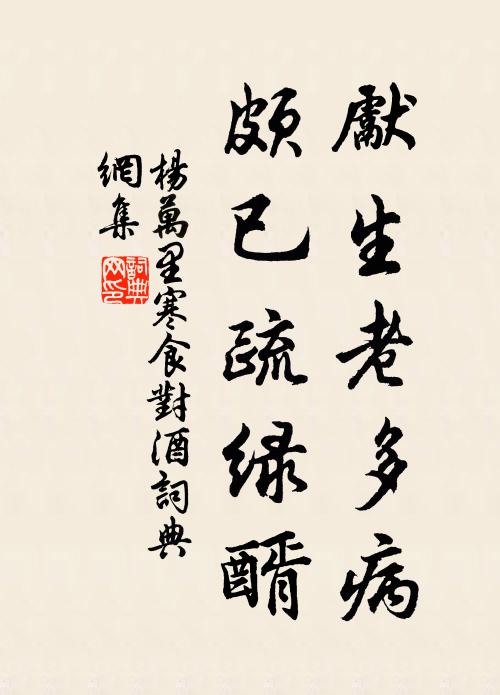 獻生老多病
頗已疏绿醑
楊萬里寒食對酒詞典
網集
詞典
网印